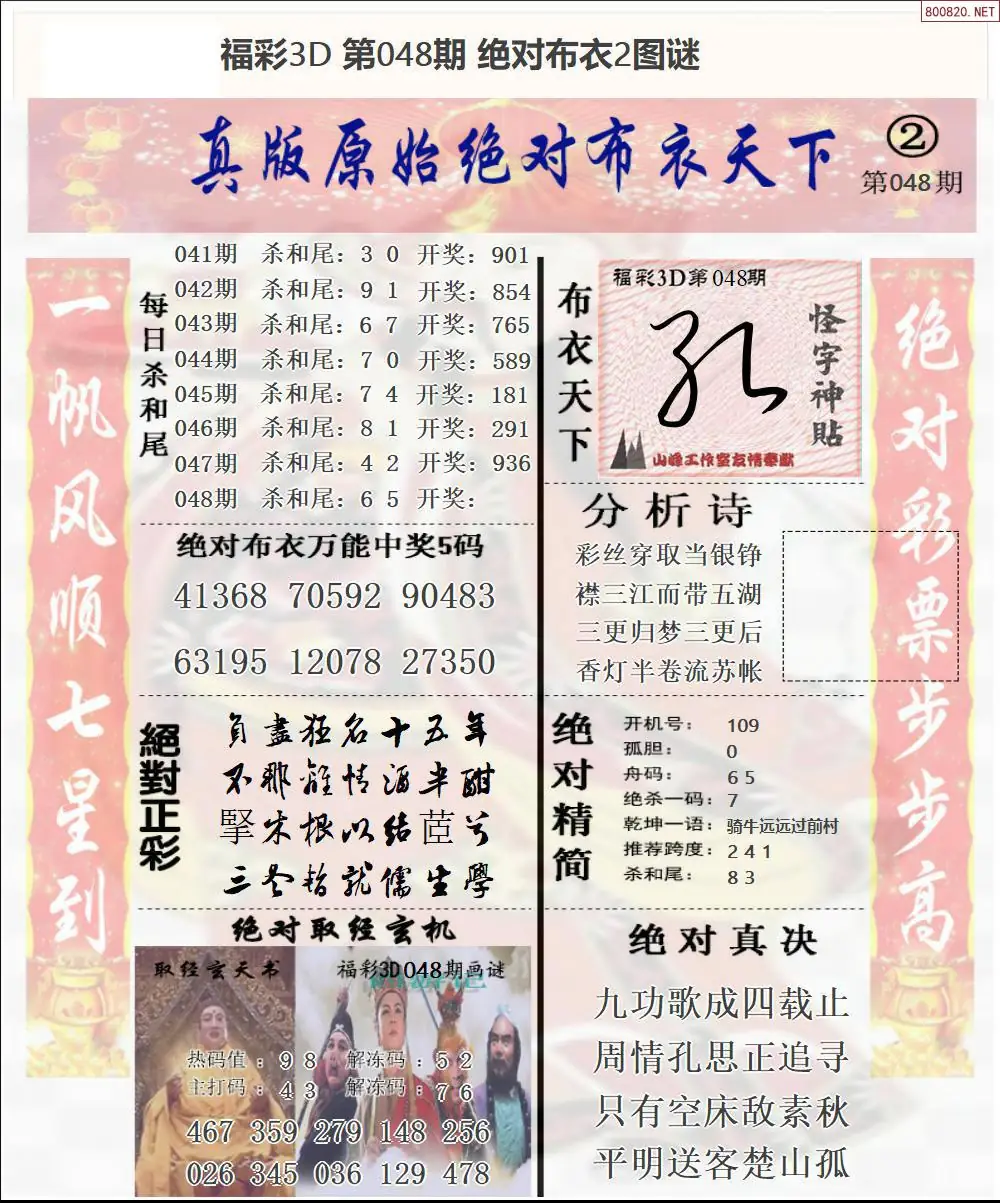 800820.NET
福彩3D 第048期 绝对布衣2图谜
真版原始绝对布衣天下
②
第048期
一帆风顺七星到
每日杀和尾
041期 杀和尾：3 0 开奖：901
042期 杀和尾：9 1 开奖：854
043期 杀和尾：6 7 开奖：765
044期 杀和尾：7 0 开奖：589
045期 杀和尾：7 4 开奖：181
046期 杀和尾：8 1 开奖：291
047期 杀和尾：4 2 开奖：936
048期 杀和尾：6 5 开奖：
绝对布衣万能中奖5码
41368 70592 90483
63195 12078 27350
絕對正彩
負盡狂名十五年
不那離情酒半酣
掔木根以结茝兮
三冬暂就儒生學
绝对取经玄机
取经玄天书
福彩3D048期画谜
热码值：9 8 解冻码：5 2
主打码：4 3 解冻码：7 6
467 359 279 148 256
026 345 036 129 478
布衣天下
福彩3D第048期
怪字神貼
山峰工作室友情奉献
分析诗
彩丝穿取当银铮
襟三江而带五湖
三更归梦三更后
香灯半卷流苏帐
绝对精简
开机号： 109
孤胆： 0
舟码： 6 5
绝杀一码：7
乾坤一语：骑牛远远过前村
推荐跨度：2 4 1
杀和尾： 8 3
绝对真决
九功歌成四载止
周情孔思正追寻
只有空床敌素秋
平明送客楚山孤
绝对彩票步步高